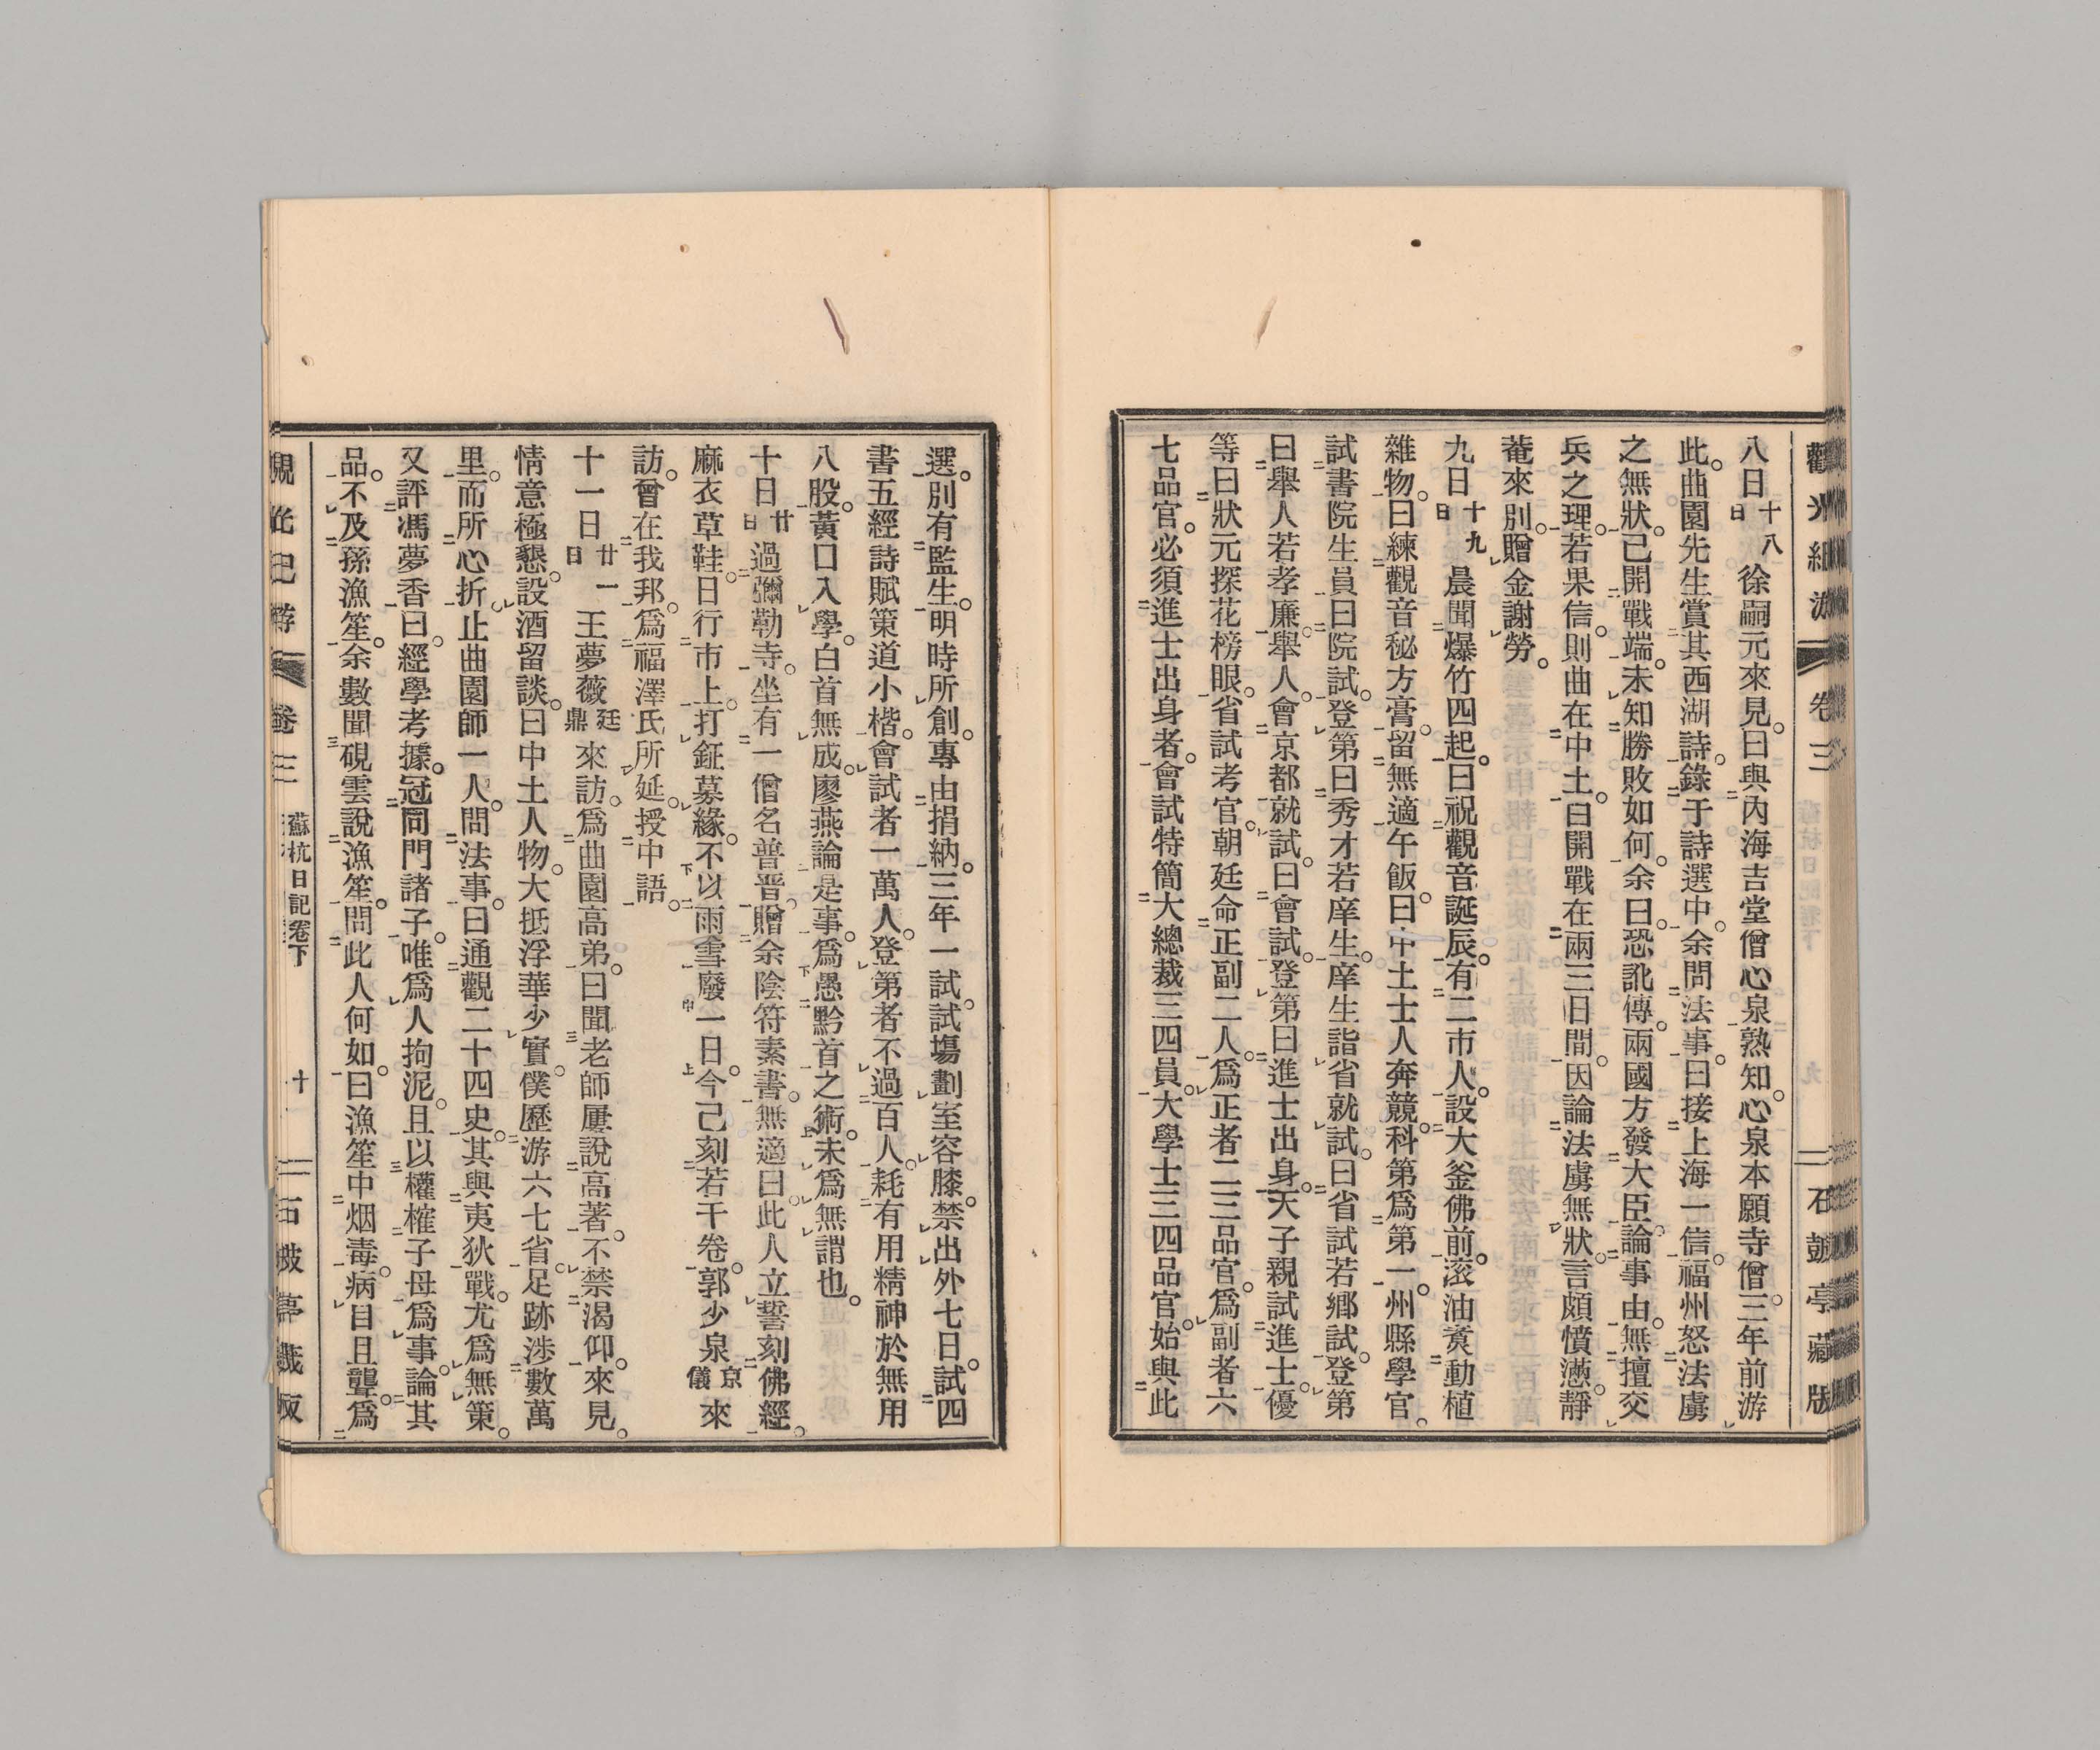 觀光紀游 卷三 石皷亭藏版
八日十八日徐嗣元來見。曰與內海吉堂僧心泉熟知。心泉本願寺僧。三年前游
此。曲園先生賞其西湖詩。錄于詩選中。余問法事。曰接上海一信。福州怒法虜
之無狀。已開戰端。未知勝敗如何。余曰。恐訛傳。兩國方發大臣。論事由。無擅交
兵之理。若果信。則曲在中土。曰開戰在兩三日間。因論法虜無狀。言頗憤懣。靜
菴來別。贈金謝勞。
九日十九日晨聞爆竹四起。曰祝觀音誕辰。有二市人。設大釜佛前。滾油賁動植
雜物。曰練觀音秘方膏。留無適午飯。曰中土士人奔競。科第爲第一。州縣學官。
試書院生員曰院試。登第曰秀才若庠生。庠生詣省就試。曰省試若鄉試。登第
曰舉人若孝廉。舉人。會京都就試。曰會試。登第曰進士出身。天子親試進士。優
等曰狀元探花榜眼。省試考官。朝廷命正副二人。爲正者二三品官。爲副者六
七品官。必須進士出身者。會試特簡大總裁三四員。大學士三四品官。始與此
選。別有監生。明時所創。專由捐納。三年一試。試塲劃室容膝。禁出外七日。試四
書五經詩賦策道小楷。會試者一萬人。登第者不過百人。耗有用精神於無用
八股。黃口入學。白首無成。廖燕論是事。爲愚黔首之術。未爲無謂也。
十日廿日過彌勒寺。坐有一僧名普晋。贈余陰符素書。無適曰。此人立誓刻佛經。
麻衣草鞋。日行市上。打鉦募緣。不以雨雪廢一日。今已刻若干卷。郭少泉京儀來
訪。曾在我邦。爲福澤氏所延。授中語。
十一日廿一日王夢薇廷鼎來訪。爲曲園高弟。曰聞老師屢說高著。不禁渴仰。來見。
情意極懇。設酒留談。曰中土人物。大抵浮華少實。僕歷游六七省。足跡涉數萬
里。而所心折。止曲園師一人。問法事。曰通觀二十四史。其與夷狄戰。尤爲無策。
又評馮夢香曰。經學考據。冠同門諸子。唯爲人拘泥。且以權榷子母爲事。論其
品。不及孫漁笙。余數聞硯雲說漁笙。問此人何如。曰漁笙中烟毒。病目且聾。爲
蘇杭日記卷下 十